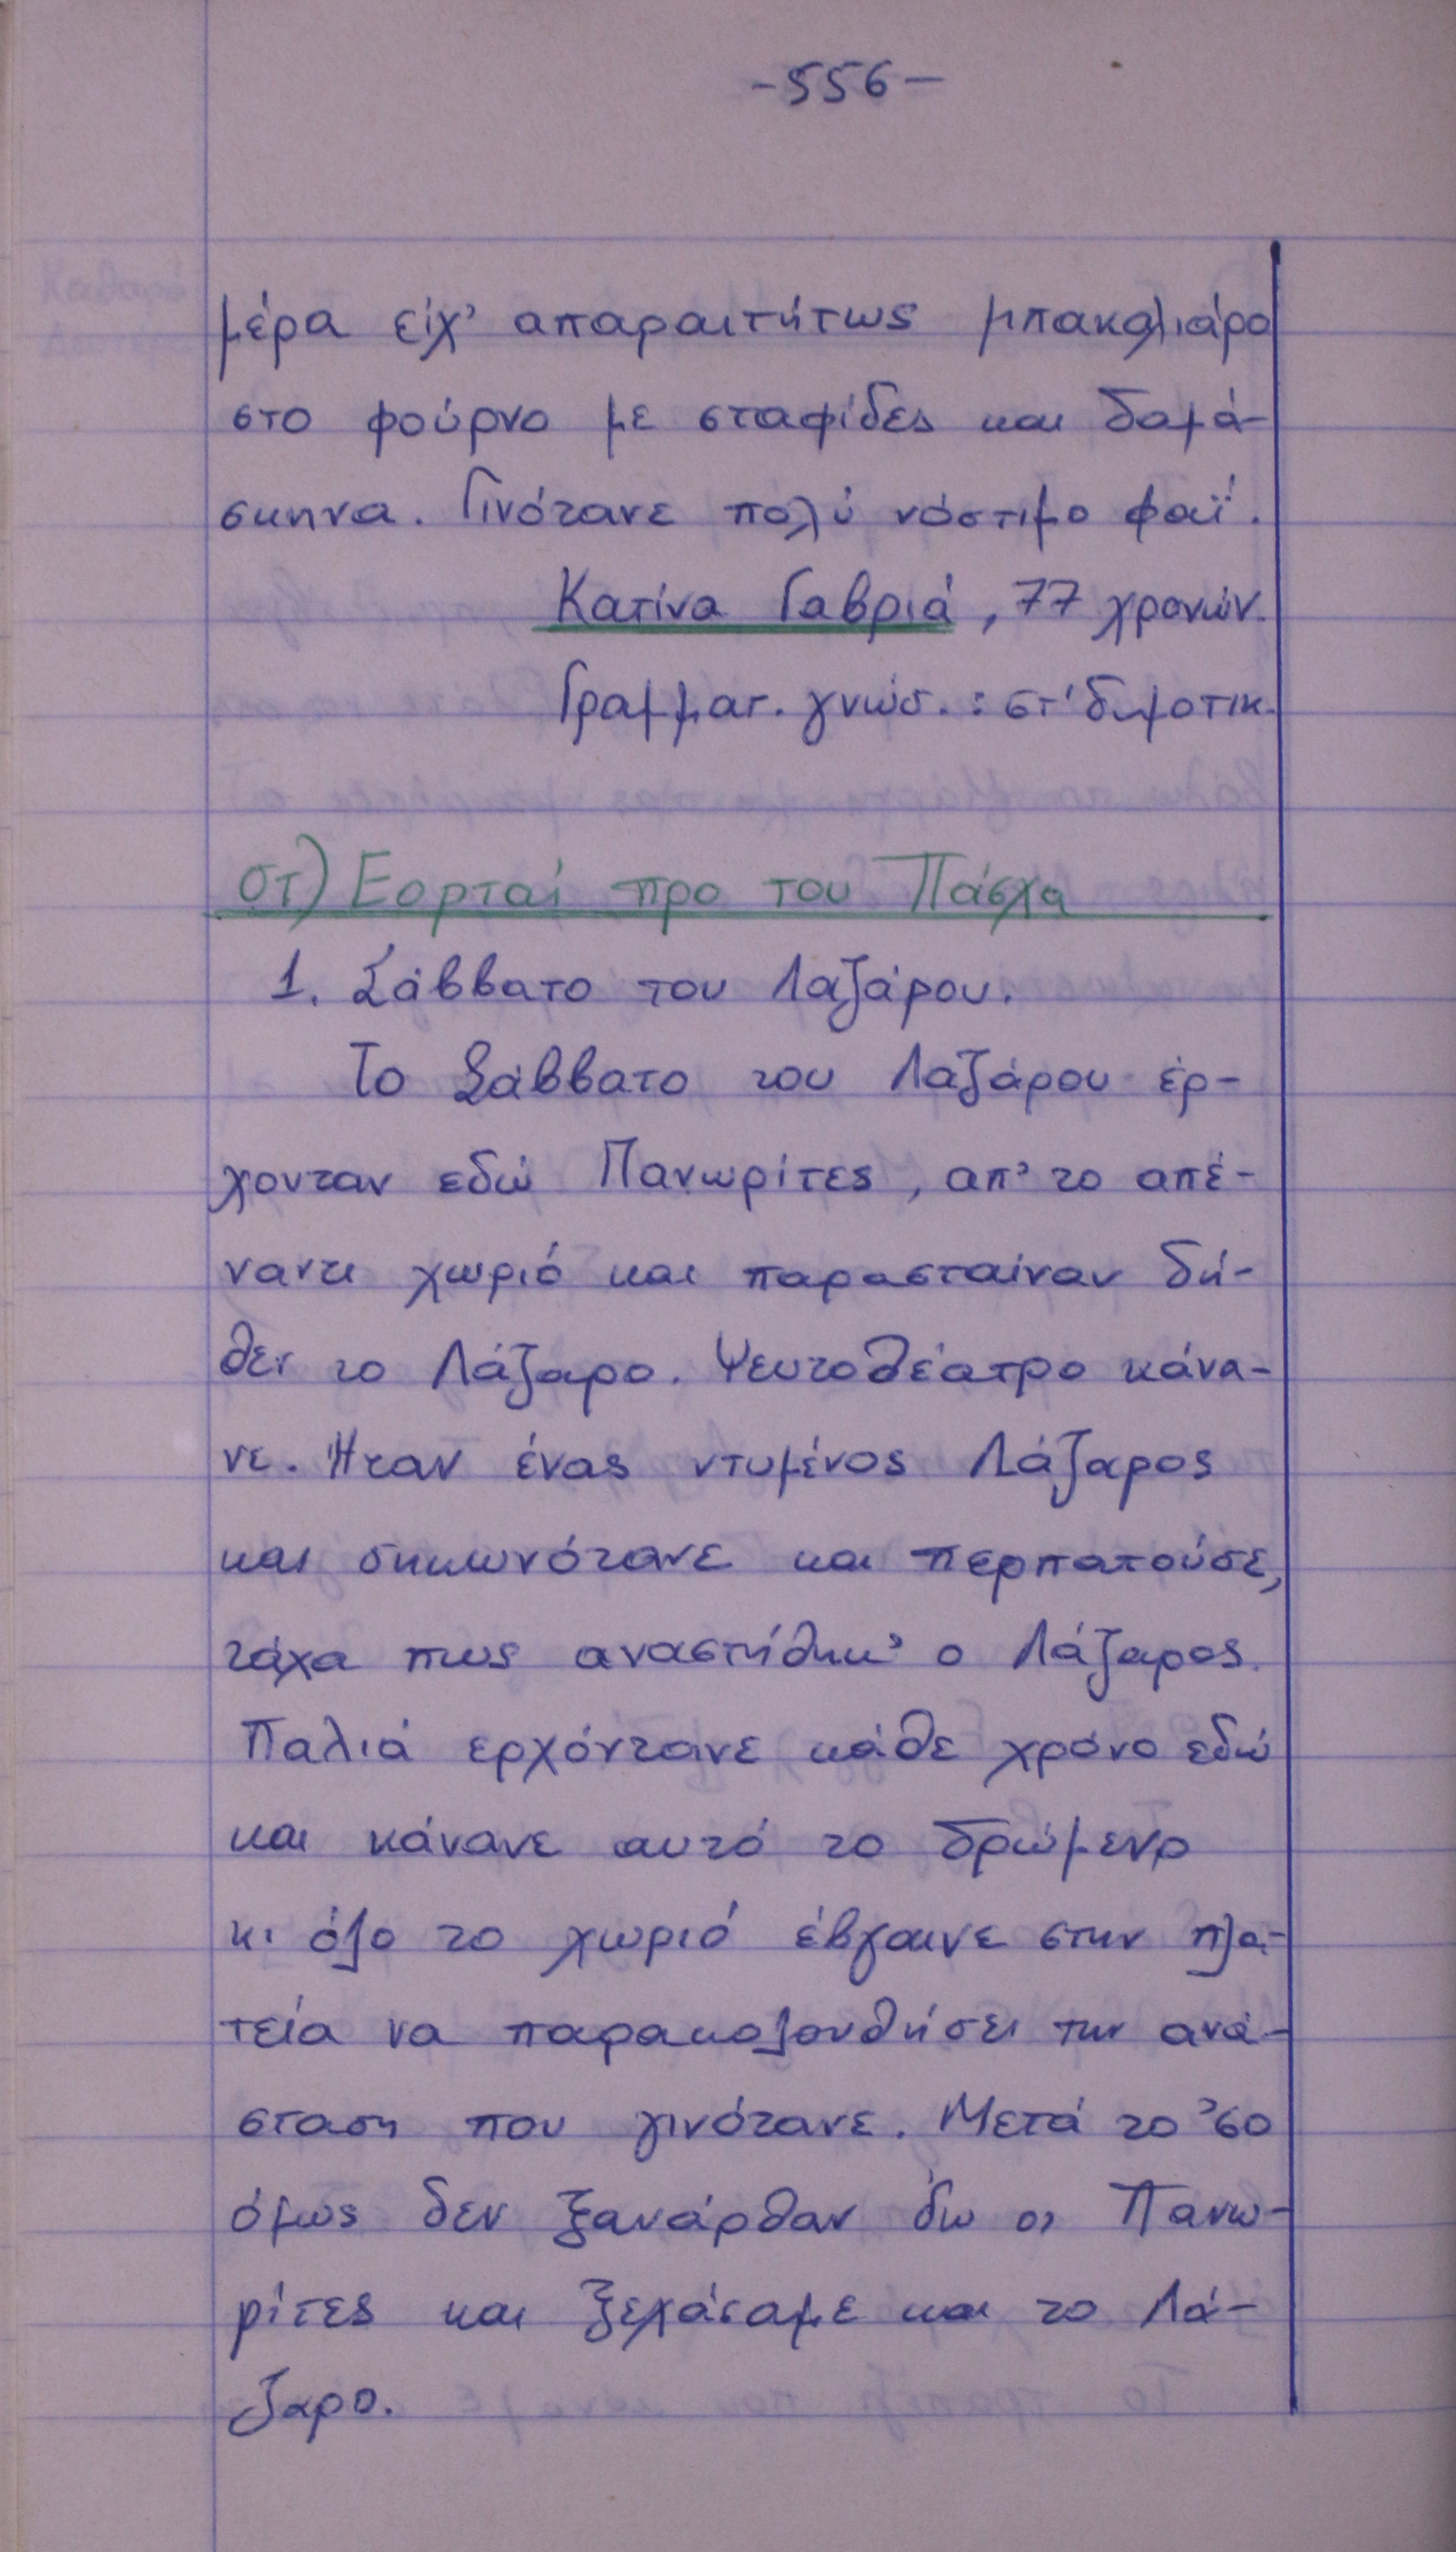 -556-
μέρα είχ' απαραιτήτως μπακαλιάρο
στο φούρνο με σταφίδες και δαμά-
σκηνα. Γινότανε πολύ νόστιμο φαΐ.
Κατίνα Γαβριά, 77 χρονών.
Γραμματ. γνώσ. : στ' δημοτικ.
στ) Εορταί προ του Πάσχα
1. Σάββατο του Λαζάρου.
Το Σάββατο του Λαζάρου έρ-
χονταν εδώ Πανωρίτες, απ' το απέ-
ναντι χωριό και παρασταίναν δή-
θεν το Λάζαρο. Ψευτοθέατρο κάνα-
νε. Ήταν ένας ντυμένος Λάζαρος
και σηκωνότανε και περπατούσε,
τάχα πως αναστήθηκ' ο Λάζαρος.
Παλιά ερχόντανε κάθε χρόνο εδώ
και κάνανε αυτό το δρώμενο
κι όλο το χωριό έβγαινε στην πλα-
τεία να παρακολουθήσει την ανά-
σταση που γινότανε. Μετά το '60
όμως δεν ξανάρθαν δω οι Πανω-
ρίτες και ξεχάσαμε και το Λά-
ζαρο.